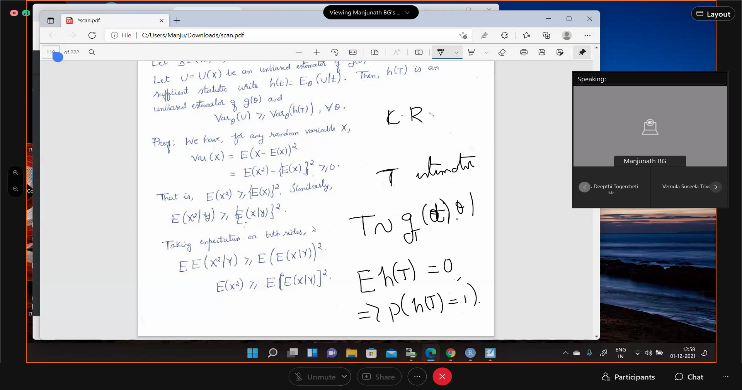 Viewing Manjunath BG's...
Layout
scan.pdf
File C:/Users/Manju/Downloads/scan.pdf
of 222
Let U = U(X) be an unbiased estimator of g(θ).
sufficient statistic write h(t) = E_θ(U|t). Then, h(T) is an
unbiased estimator of g(θ) and
Var_θ(U) ≥ Var_θ(h(T)), ∀ θ.
Proof: We have, for any random variable X,
Var(X) = E(X-E(X))²
= E(X²) - {E(X)}² ≥ 0.
That is, E(X²) ≥ {E(X)}². Similarly,
E(X²|Y) ≥ {E(X|Y)}².
Taking expectation on both sides,
E E(X²|Y) ≥ E(E(X|Y))².
E(X²) ≥ E[E(X|Y)]².
C.R
T estimator
T ~ g_T(t, θ)
E h(T) = 0,
=> P(h(T) = 1).
Speaking:
Manjunath BG
Deepthi Togercheti
Vemula Sureela
ENG
IN
12:58
01-12-2021
Unmute
Share
Participants
Chat